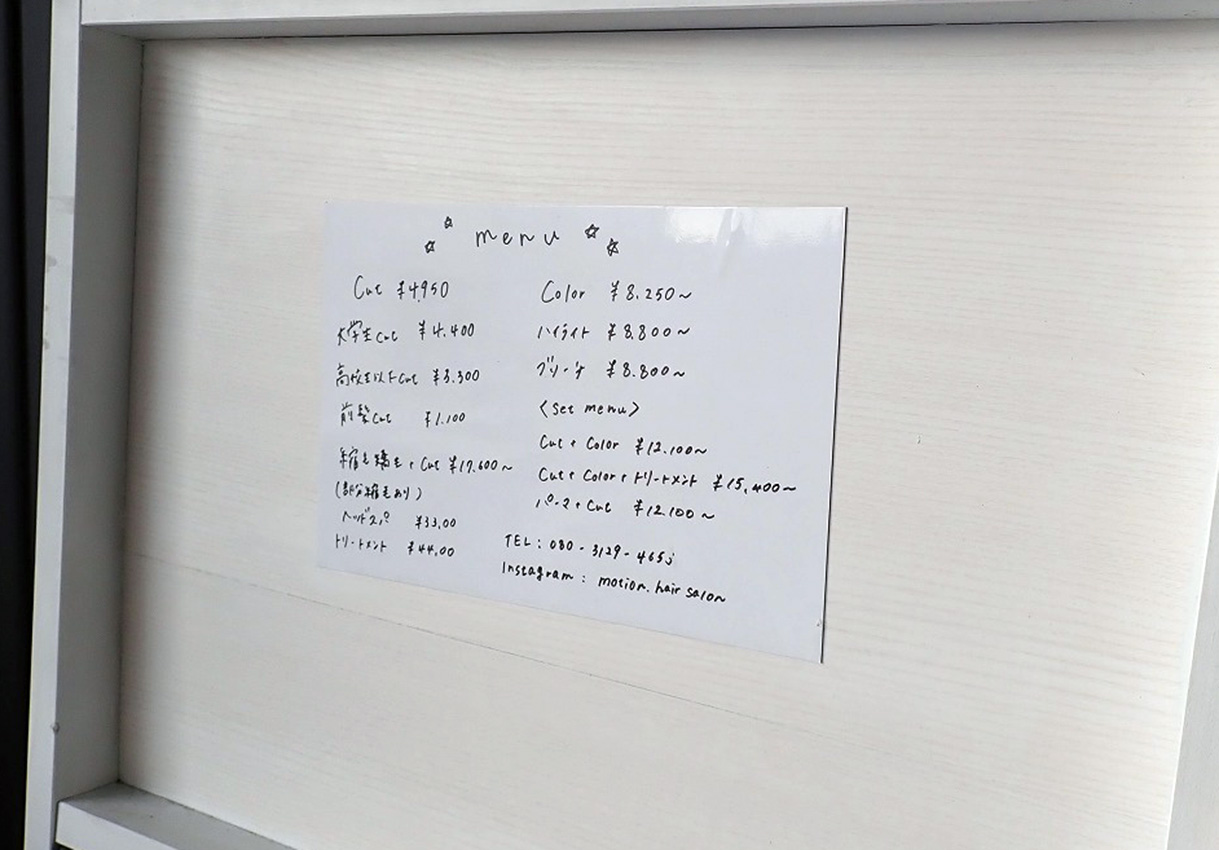 menu
Cut ¥4,950
大学生Cut ¥4.400
高校生以下Cut ¥3.300
前髪Cut ¥1.100
縮毛矯正+Cut ¥17.600~
(部分縮毛あり)
ヘッドスパ ¥33.00
トリートメント ¥44.00
Color ¥8.250~
ハイライト ¥8.800~
ブリーチ ¥8.800~
<Set menu>
Cut + Color ¥12.100~
Cut + Color + トリートメント ¥15,400~
パーマ + Cut ¥12.100~
TEL: 080-3129-4655
Instagram : motion.hair salon